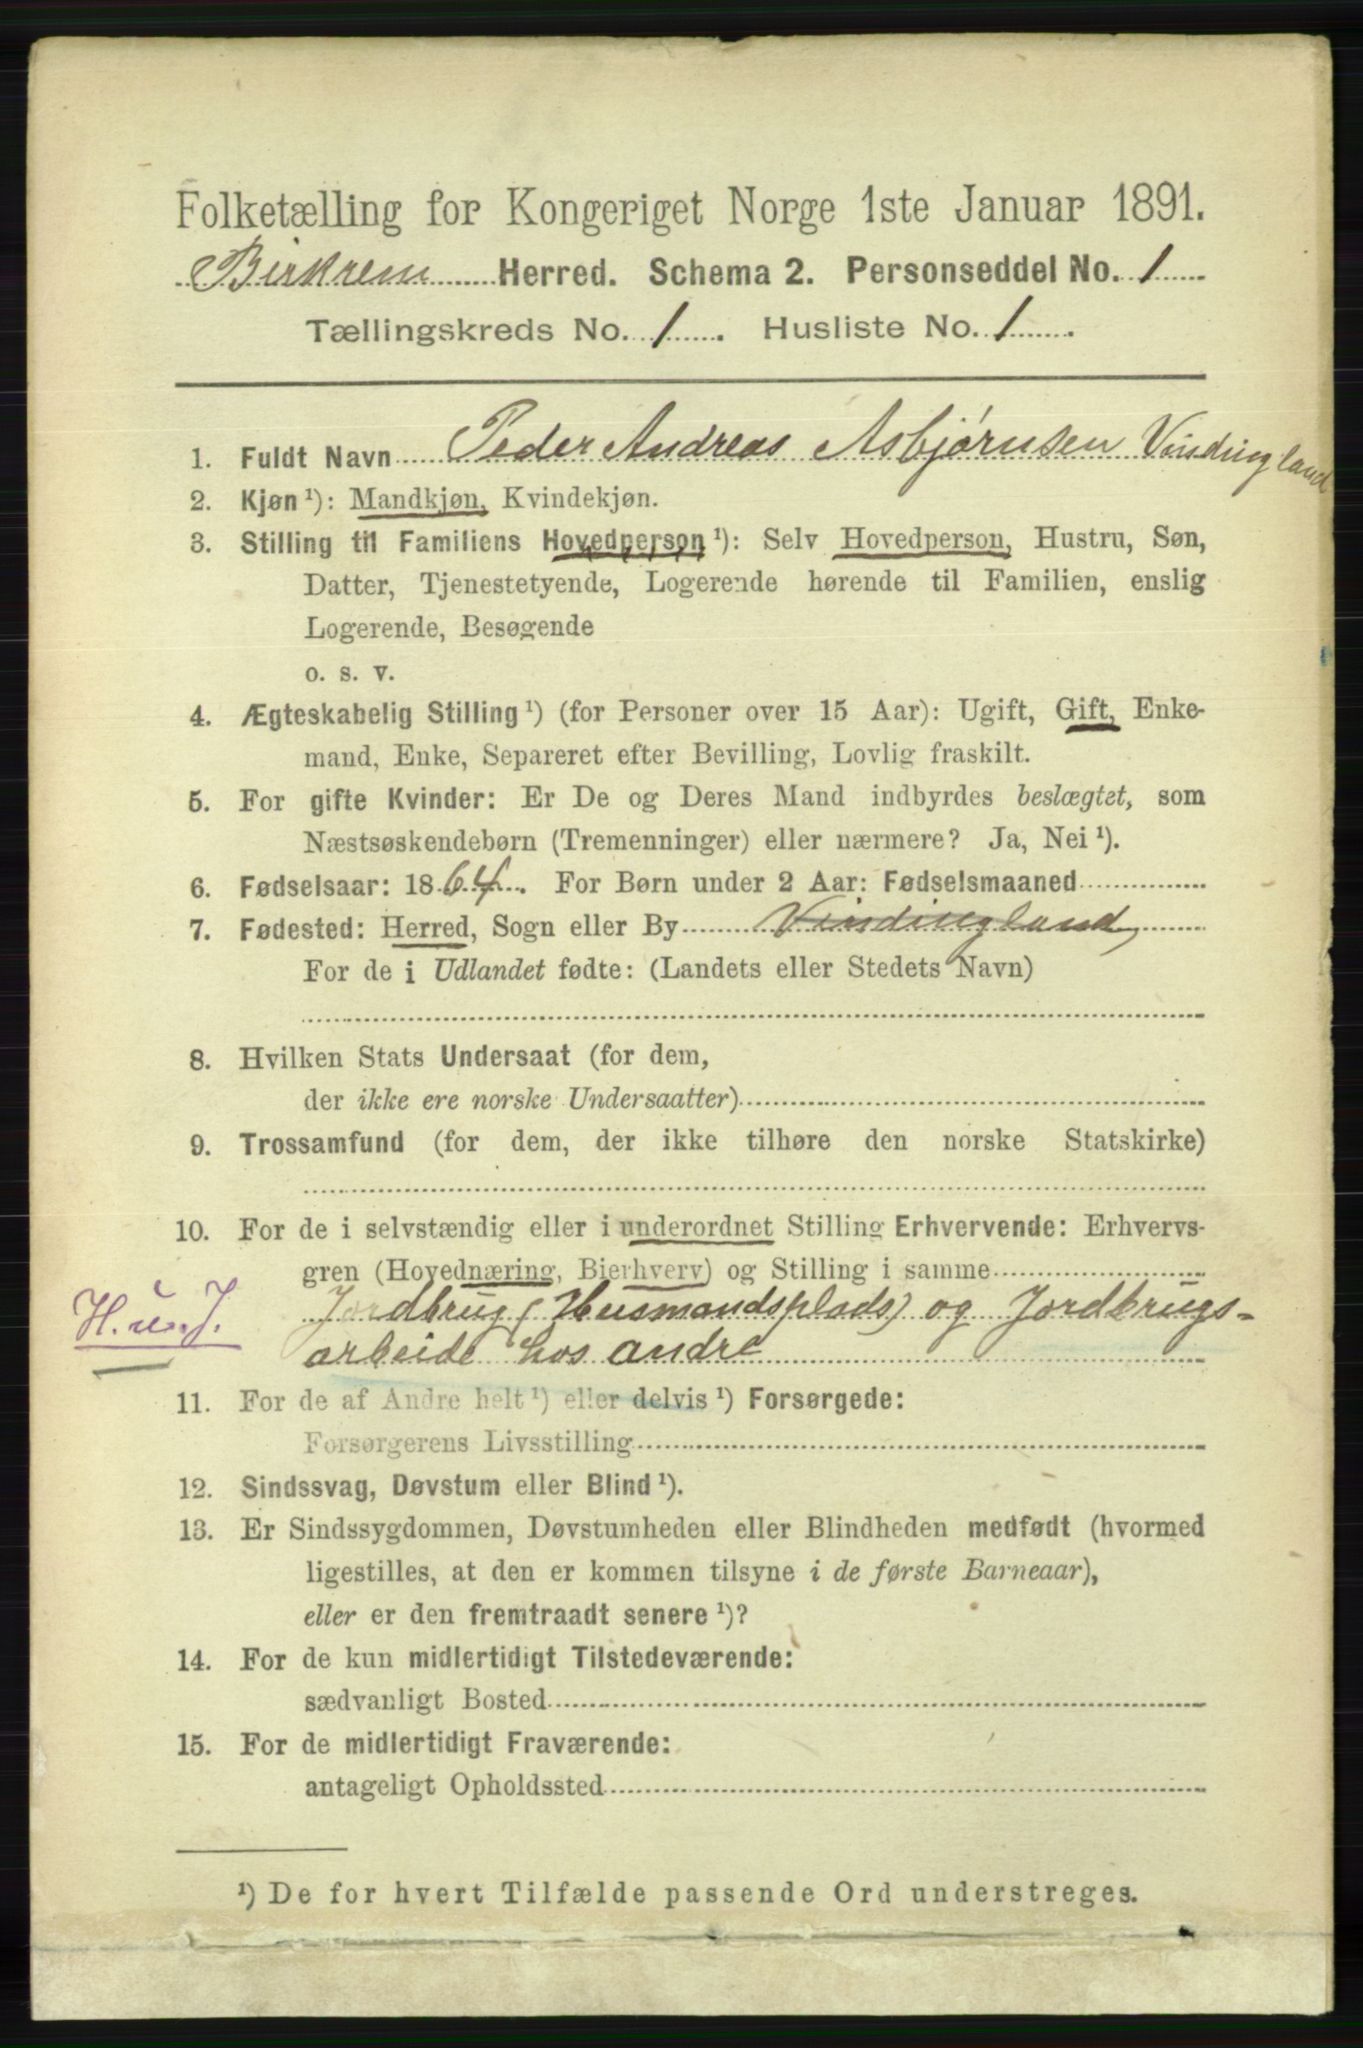 Folketælling for Kongeriget Norge 1ste Januar 1891.
Birkrem Herred. Schema 2. Personseddel No. 1
Tællingskreds No. 1. Husliste No. 1.
1. Fuldt Navn Peder Andreas Asbjørnsen Vindingland
2. Kjøn ¹): Mandkjøn, Kvindekjøn.
3. Stilling til Familiens Hovedperson ¹): Selv Hovedperson, Hustru, Søn,
Datter, Tjenestetyende, Logerende hørende til Familien, enslig
Logerende, Besøgende
o. s. v.
4. Ægteskabelig Stilling ¹) (for Personer over 15 Aar): Ugift, Gift, Enke-
mand, Enke, Separeret efter Bevilling, Lovlig fraskilt.
5. For gifte Kvinder: Er De og Deres Mand indbyrdes beslægtet, som
Næstsøskendebørn (Tremenninger) eller nærmere? Ja, Nei ¹).
6. Fødselsaar: 1864. For Børn under 2 Aar: Fødselsmaaned
7. Fødested: Herred, Sogn eller By Vindingland,
For de i Udlandet fødte: (Landets eller Stedets Navn)
8. Hvilken Stats Undersaat (for dem,
der ikke ere norske Undersaatter)
9. Trossamfund (for dem, der ikke tilhøre den norske Statskirke)
10. For de i selvstændig eller i underordnet Stilling Erhvervende: Erhvervs-
gren (Hovednæring, Bierhverv) og Stilling i samme
H.u.J. Jordbrug (Husmandsplads) og Jordbrugs-
arbeide hos andre
11. For de af Andre helt ¹) eller delvis ¹) Forsørgede:
Forsørgerens Livsstilling
12. Sindssvag, Døvstum eller Blind ¹).
13. Er Sindssygdommen, Døvstumheden eller Blindheden medfødt (hvormed
ligestilles, at den er kommen tilsyne i de første Barneaar),
eller er den fremtraadt senere ¹)?
14. For de kun midlertidigt Tilstedeværende:
sædvanligt Bosted
15. For de midlertidigt Fraværende:
antageligt Opholdssted
¹) De for hvert Tilfælde passende Ord understreges.